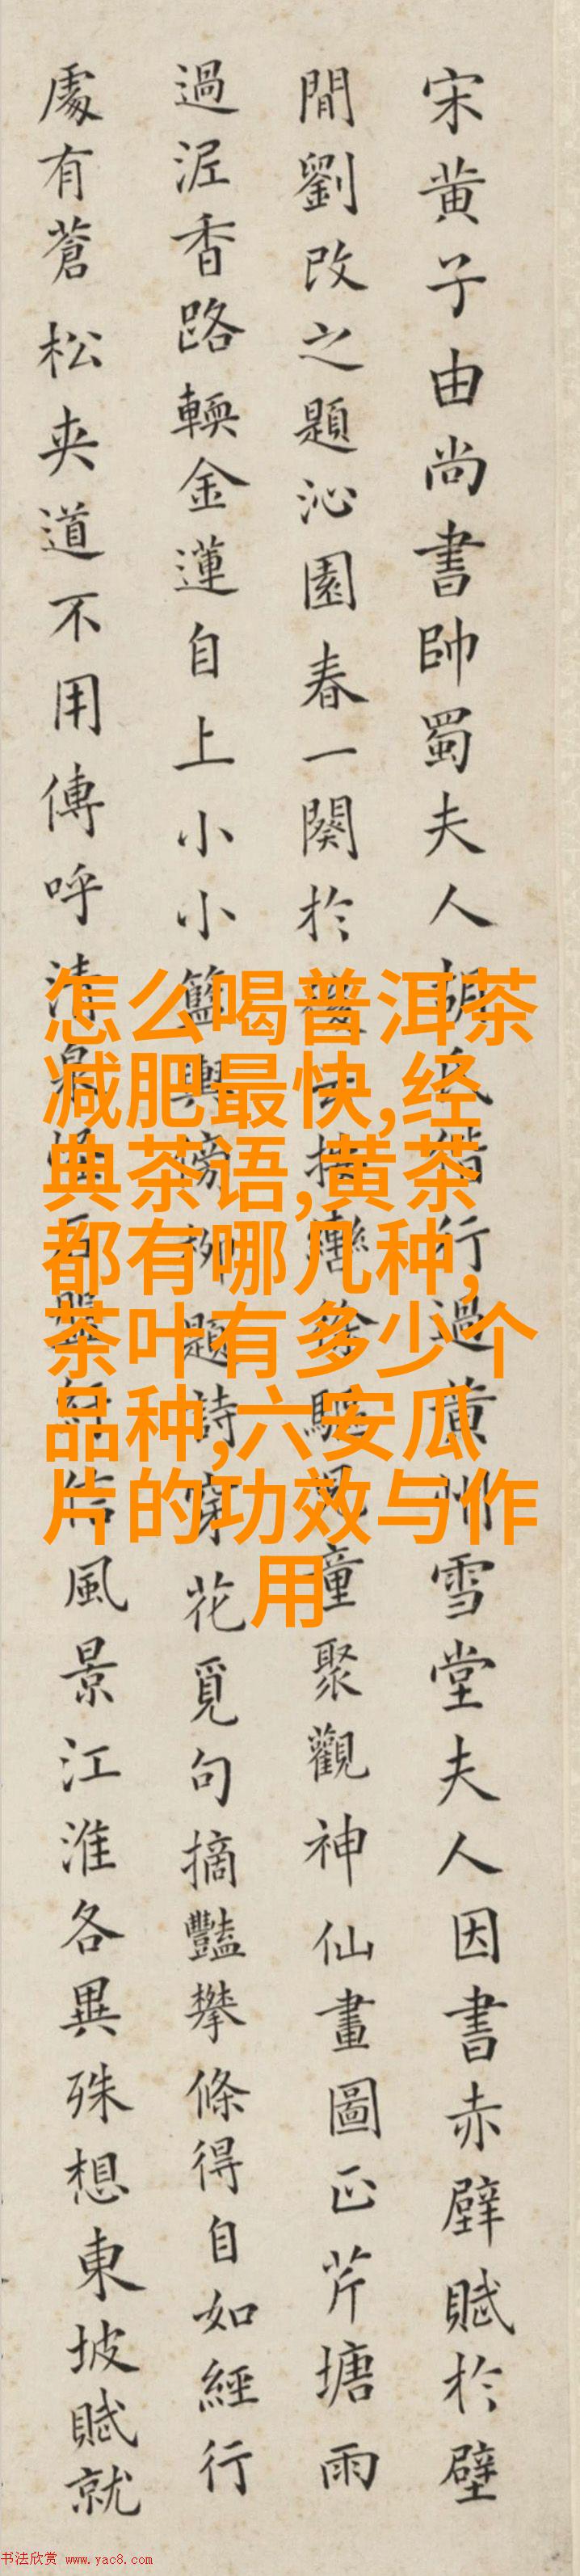 宋黄子由尚書帥蜀夫人胡氏偕行過黄州雪堂夫人因書赤壁賦於壁
間劉改之題沁園春一闋於後云按轡徐驅兒童聚觀神仙畫圖正芹塘雨
過泥香路輭金蓮自上小小籃輿傍柳題詩穿花覓句摘豔攀條得自如經行
處有蒼松夾道不用傳呼清泉怪石盤紆信風景江淮各異殊想東坡賦就
怎么喝普洱茶
减肥最快,经
典茶语,黄茶
都有哪几种,
茶叶有多少个
品种,六安瓜
片的功效与作
用
书法欣赏 www.yac8.com